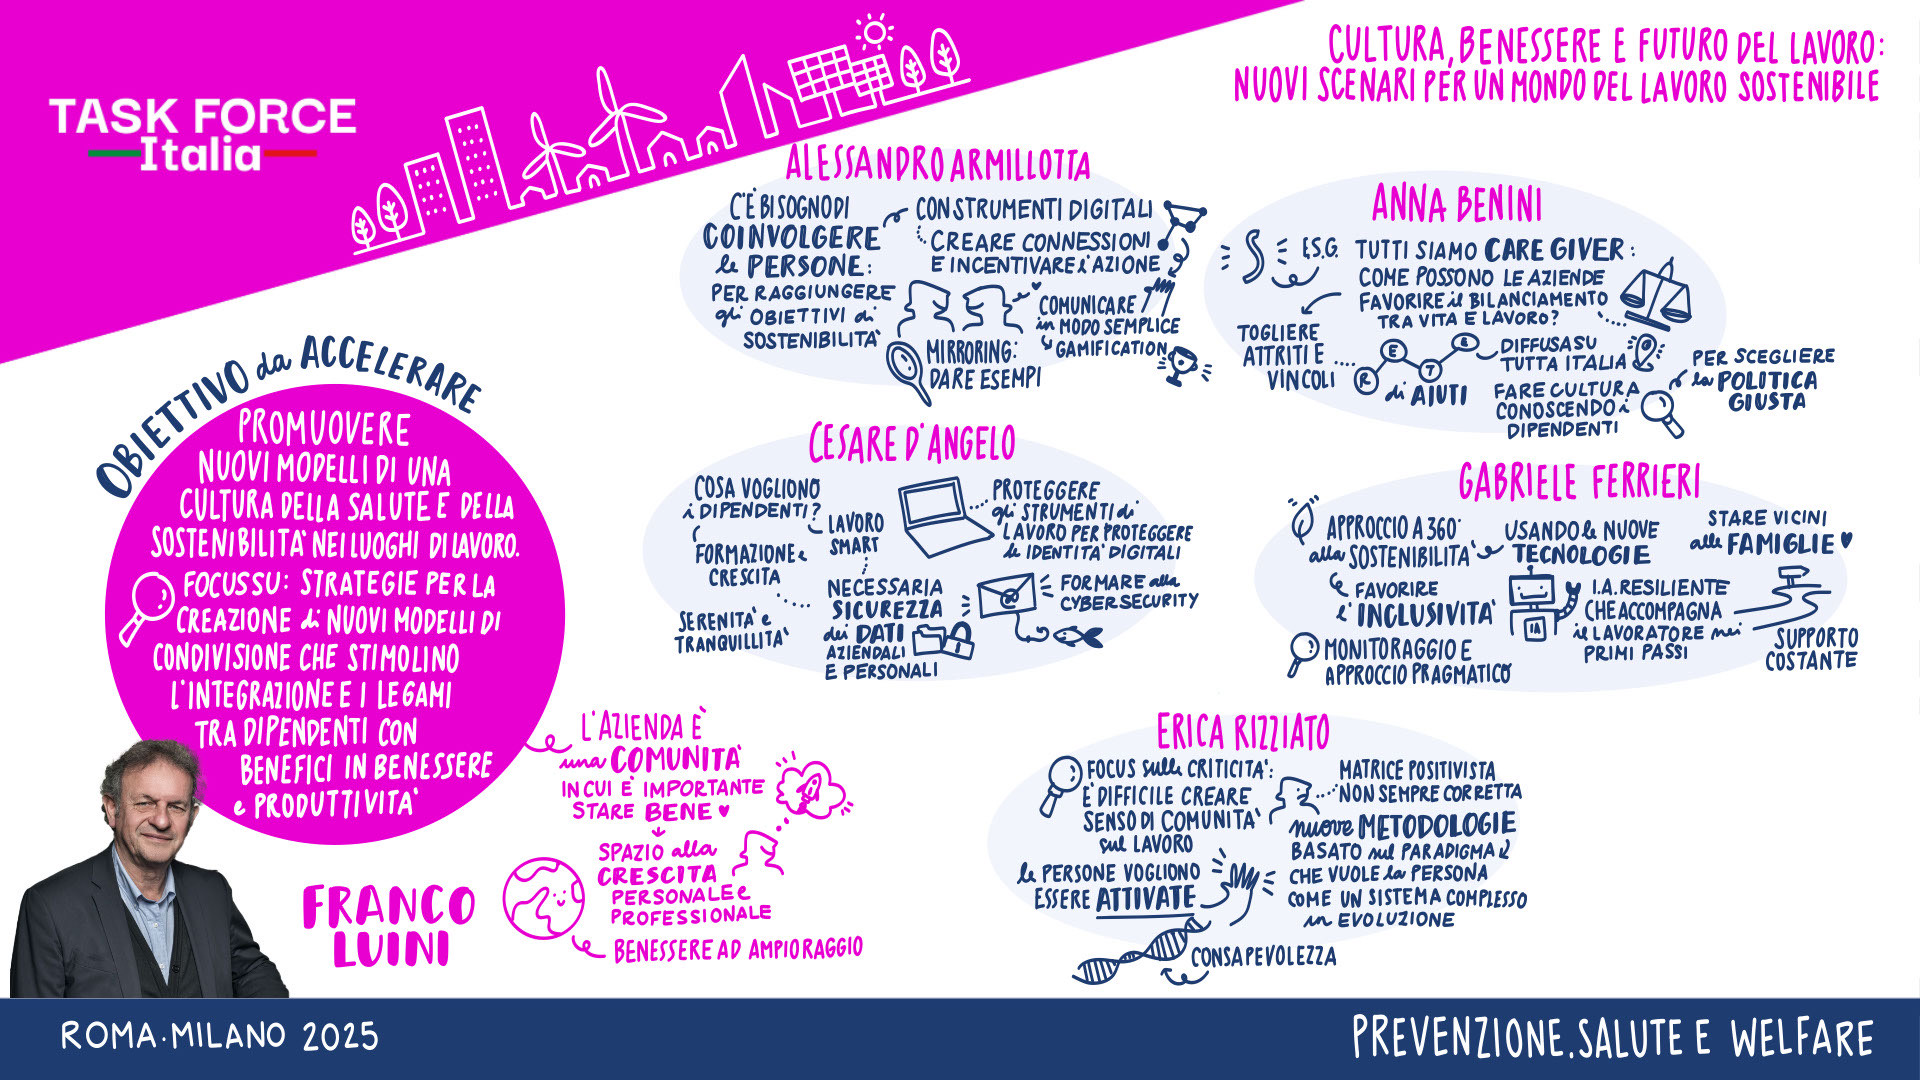 TASK FORCE
Italia
CULTURA, BENESSERE E FUTURO DEL LAVORO:
NUOVI SCENARI PER UN MONDO DEL LAVORO SOSTENIBILE
OBIETTIVO da ACCELERARE
PROMUOVERE
NUOVI MODELLI DI UNA
CULTURA DELLA SALUTE E DELLA
SOSTENIBILITA' NEI LUOGHI DI LAVORO.
FOCUS SU: STRATEGIE PER LA
CREAZIONE di NUOVI MODELLI DI
CONDIVISIONE CHE STIMOLINO
L'INTEGRAZIONE E I LEGAMI
TRA DIPENDENTI CON
BENEFICI IN BENESSERE
e PRODUTTIVITA'
FRANCO
LUINI
L'AZIENDA E'
una COMUNITA'
IN CUI E' IMPORTANTE
STARE BENE
SPAZIO alla
CRESCITA
PERSONALE e
PROFESSIONALE
BENESSERE AD AMPIO RAGGIO
ALESSANDRO ARMILLOTTA
C'È BISOGNO DI
COINVOLGERE
le PERSONE:
PER RAGGIUNGERE
gli OBIETTIVI di
SOSTENIBILITA'
CON STRUMENTI DIGITALI
CREARE CONNESSIONI
E INCENTIVARE l'AZIONE
COMUNICARE
in MODO SEMPLICE
GAMIFICATION
MIRRORING:
DARE ESEMPI
ANNA BENINI
E.S.G.
TUTTI SIAMO CARE GIVER:
COME POSSONO LE AZIENDE
FAVORIRE il BILANCIAMENTO
TRA VITA E LAVORO?
TOGLIERE
ATTRITI E
VINCOLI
RETE
di AIUTI
DIFFUSA SU
TUTTA ITALIA
FARE CULTURA
CONOSCENDO i
DIPENDENTI
PER SCEGLIERE
la POLITICA
GIUSTA
CESARE D'ANGELO
COSA VOGLIONO
i DIPENDENTI?
FORMAZIONE e
CRESCITA
SERENITA' e
TRANQUILLITA'
LAVORO
SMART
NECESSARIA
SICUREZZA
dei DATI
AZIENDALI
E PERSONALI
PROTEGGERE
gli STRUMENTI di
LAVORO PER PROTEGGERE
le IDENTITA' DIGITALI
@
FORMARE alla
CYBERSECURITY
GABRIELE FERRIERI
APPROCCIO A 360°
alla SOSTENIBILITA'
FAVORIRE
l'INCLUSIVITA'
MONITORAGGIO E
APPROCCIO PRAGMATICO
USANDO le NUOVE
TECNOLOGIE
IA
I.A. RESILIENTE
CHE ACCOMPAGNA
il LAVORATORE nei
PRIMI PASSI
STARE VICINI
alle FAMIGLIE
SUPPORTO
COSTANTE
ERICA RIZZIATO
FOCUS sulle CRITICITA':
E' DIFFICILE CREARE
SENSO DI COMUNITA'
sul LAVORO
le PERSONE VOGLIONO
ESSERE ATTIVATE
CONSAPEVOLEZZA
MATRICE POSITIVISTA
NON SEMPRE CORRETTA
nuove METODOLOGIE
BASATO sul PARADIGMA
CHE VUOLE la PERSONA
COME UN SISTEMA COMPLESSO
in EVOLUZIONE
ROMA·MILANO 2025
PREVENZIONE. SALUTE E WELFARE